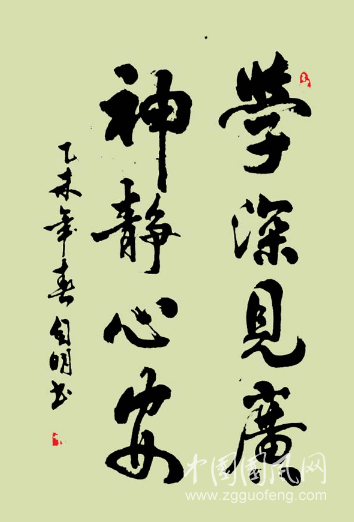 學深見廣
神靜心安
乙未年春自明书
中国国风网
www.zgguofeng.com